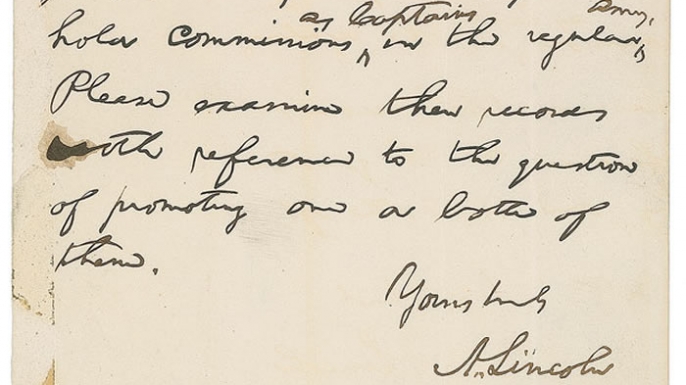 as Captains Army,
hold commissions, in the regular
Please examine their records
with reference to the question
of promoting one or both of
them.
Yours truly
A. Lincoln